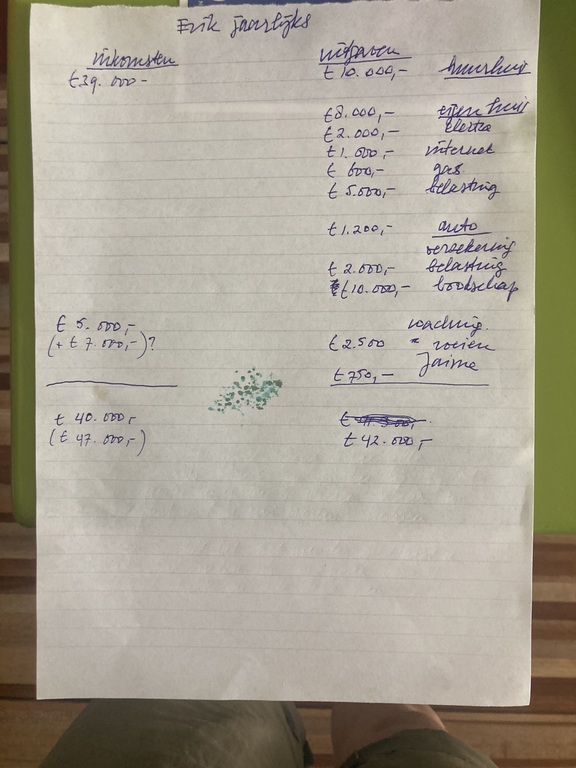 Erik jaarlijks
inkomsten uitgaven
€39.000,- €10.000,- huurhuis
€8.000,- eigen huis
€2.000,- Elektra
€1.000,- internet
€ 600,- gas
€5.000,- belasting
€1.200,- auto
verzekering
€2.000,- belasting
€10.000,- boodschap
€ 5.000,- coaching
(+ € 7.000,-)? €2.500 roeien
€750,- Jaime
€ 40.000,-
(€ 47.000,-) € 42.000,-